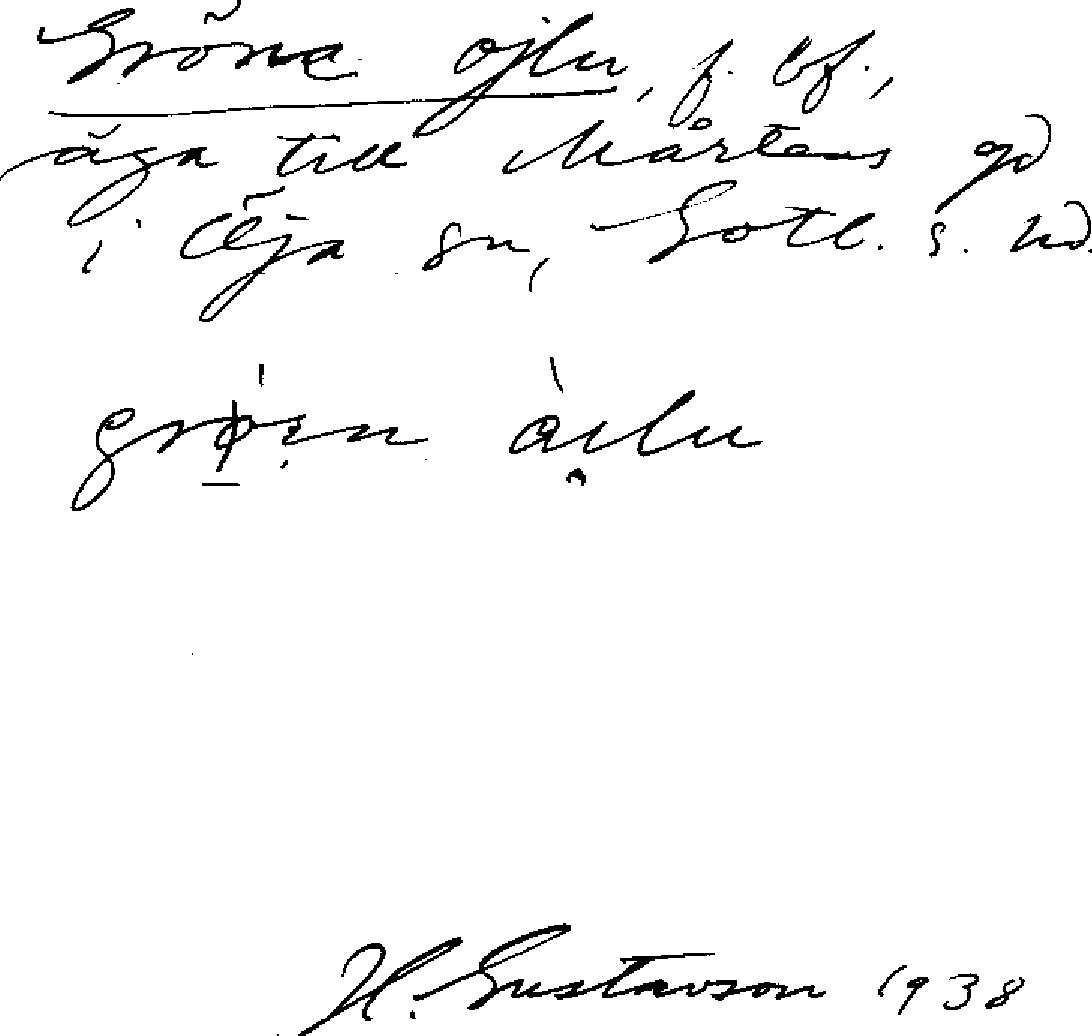 Gröne ojlu, f. bf.,
äga till Mårtens gd
i Öja sn, Gotl. s. hd.
ojlu
H. Gustavson 1938